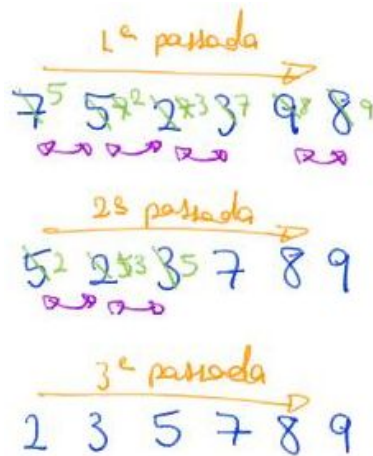 1ª passada
7 5 5 7 2 2 7 3 3 7 9 8 8 9
2ª passada
5 2 2 5 3 3 5 7 8 9
3ª passada
2 3 5 7 8 9